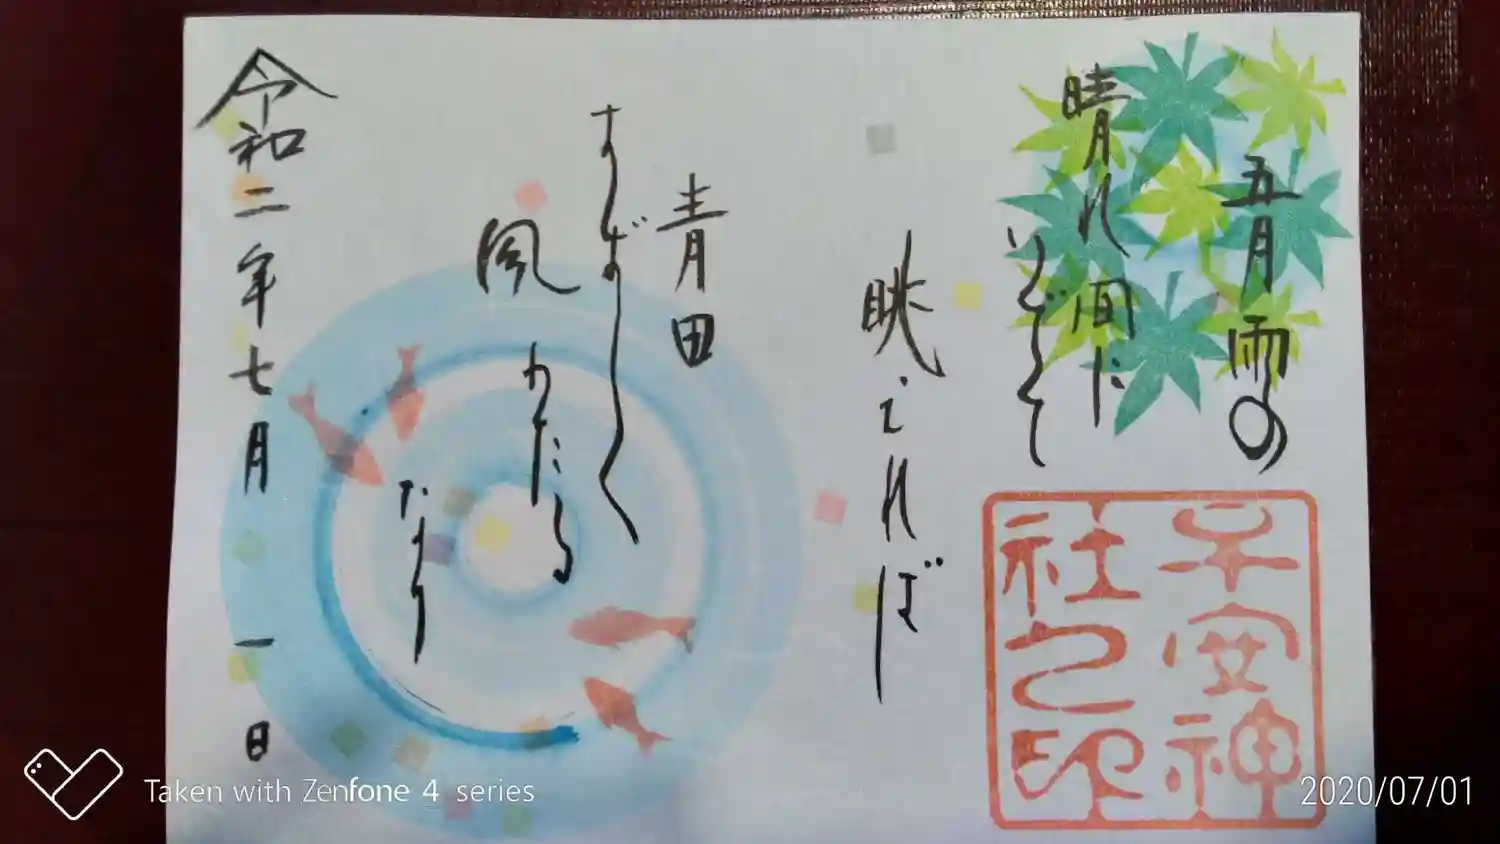 五月雨の
晴れ間に
いでて
眺むれば
青田
すずしく
風わたる
なり
令和二年七月一日
子安神
社之印
Taken with Zenfone 4 series
2020/07/01